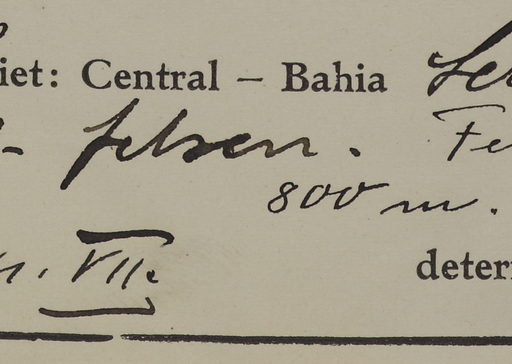 iet: Central – Bahia
felsen. Fe
800 m.
VII.
deter